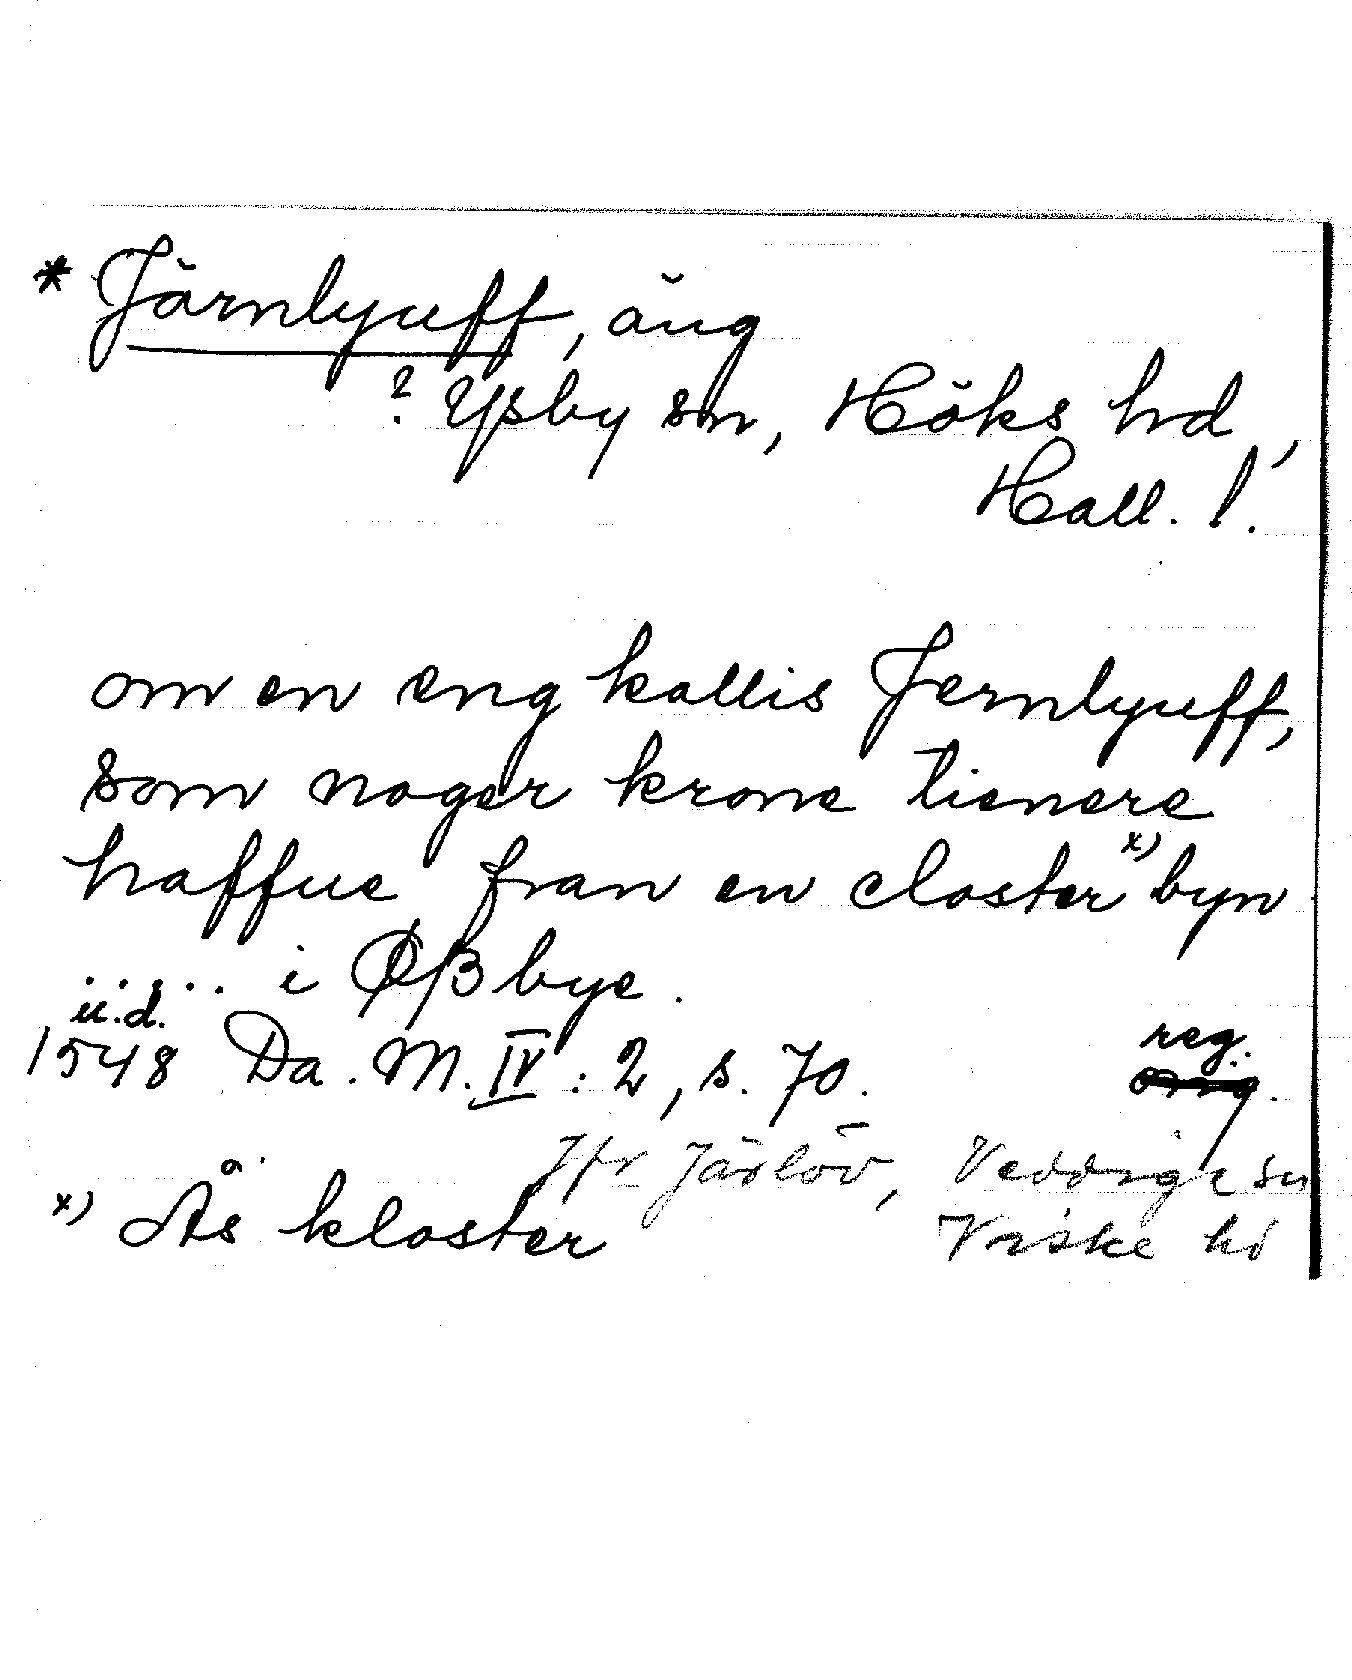 * Järnlyuff, äng
? Ysby sn, Höks hd,
Hall. l.
om en eng kallis Jernlyuff,
som noger krone tienere
haffue fran en closter x) byn
..... i Øßbye.
u.d.
1548 Da. M. IV : 2, s. 70. reg.
Jfr Järlöv, Veddige sn
x) Ås kloster Viske hd